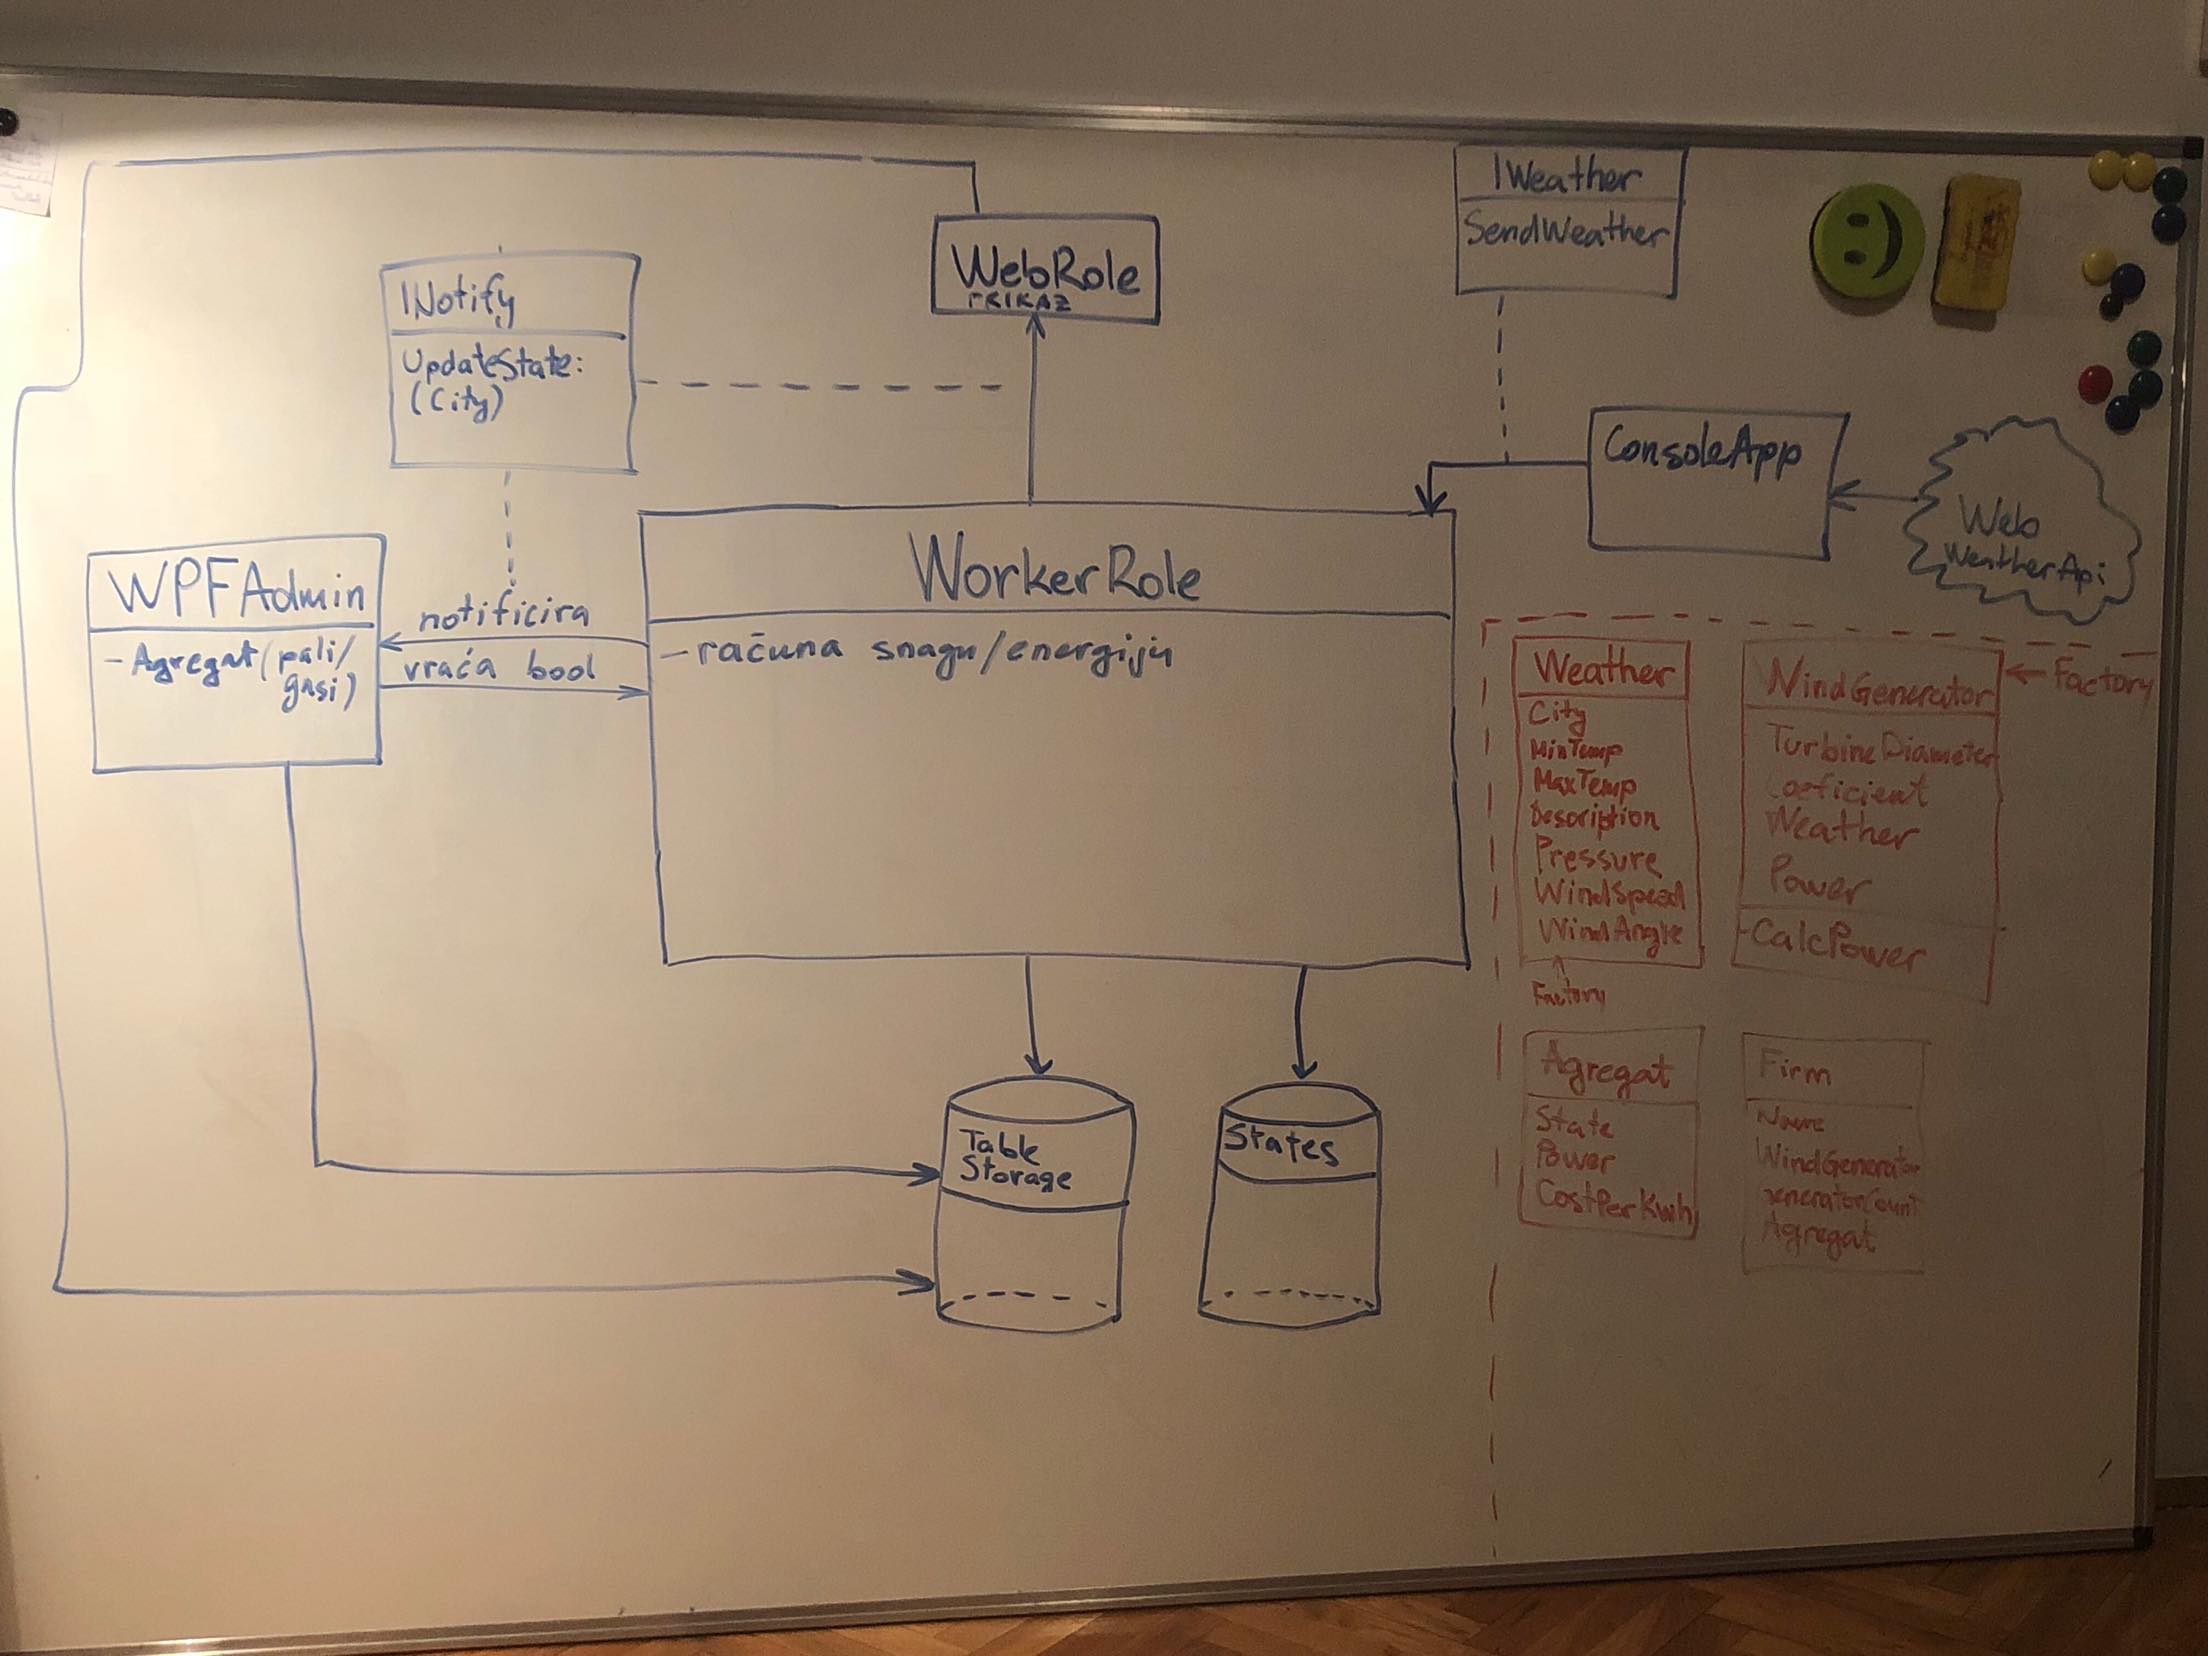 IWeather
SendWeather
WebRole
PRIKAZ
INotify
UpdateState:
(City)
ConsoleApp
Web
WeatherApi
WPFAdmin
-Agregat(pali/
gasi)
notificira
vraća bool
WorkerRole
-računa snagu/energiju
Weather
City
MinTemp
MaxTemp
Description
Pressure
WindSpeed
WindAngle
Factory
WindGenerator
TurbineDiameter
Coeficient
Weather
Power
-CalcPower
Factory
Agregat
State
Power
CostPerKwh
Firm
Name
WindGenerator
generatorCount
Agregat
Table
Storage
States